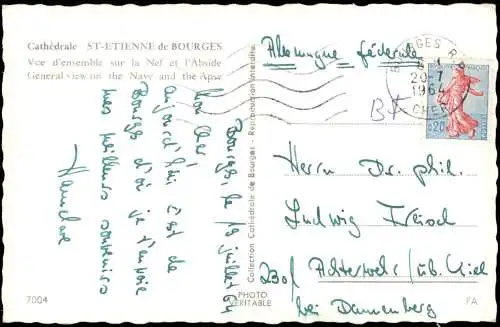 Cathédrale ST-ETIENNE de BOURGES
Vue d'ensemble sur la Nef et l'Abside
General view on the Nave and the Apse
Bourges, le 19 juillet 64
Mon cher,
aujourd'hui c'est de
Bourges d'où je t'envoie
mes meilleurs souvenirs
Hannelore
7004
Collection Cathédrale de Bourges - Reproduction Interdite.
PHOTO
VÉRITABLE
Allemagne fédérale
BOURGES R.P.
20-7
1964
CHER
0,20
POSTES
Herrn Dr. phil.
Ludwig
230/ Achterwehr/üb. Kiel
bei Dannenberg
FA